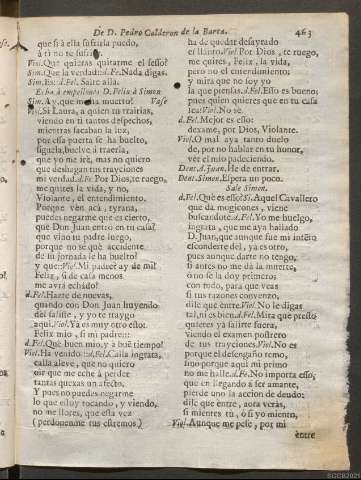 De D. Pedro Calderon de la Barca. 463
que si à ella sufrirla puedo,
à ti no te sufro.
Viol. Què quieras quitarme el sesso?
Sim. Que la verdad: d.Fe. Nada digas.
Sim. Es: d.Fel. Salte allà.
Echa à empellones D. Felix à Simon
Sim. Ay, que me ha muerto! Vase
Viol. Si Laura, a quien tu traìrias,
viendo en tì tantos despechos,
mientras sacaban la luz,
por essa puerta se ha buelto,
siguela, buelve à traerla,
que yo me irè, mas no quiero
que deshagan tus trayciones
mi verdad. d.Fe Por Dios, te ruego,
me quites la vida, y no,
Violante, el entendimiento.
Porque ven acà, tyrana,
puedes negarme que es cierto,
que Don Juan entrò en tu casa?
que vino tu padre luego,
porque no sè què accidente
de su jornada le ha buelto?
y que: Viol. Mi padre? ay de mi!
Felix, si de casa menos
me avrà echado?
d.Fel. Harte de nuevas,
quando con Don Juan huyendo
del saliste, y yo te traygo
aqui. Viol. Ya es muy otro esto.
Felix mio, si mi padre:
d.Fel. Què buen mio, y à buẽ tiempo!
Viol. Ha venido: d.Fel. Calla ingrata,
calla aleve, que no quiero
oir que me eche à perder
tantas quexas un afecto.
Y pues no puedes negarme
lo que estoy tocando, y viendo,
no me llores, que esta vez
(perdonenme tus estremos)
ha de quedar desayrado
el llanto. Viol Por Dios, te ruego,
me quites, Felix, la vida,
pero no el entendimiento:
y mira que no soy yo
la que piensas. d.Fel. Esso es bueno:
pues quien quieres que en tu casa
sea? Viol. No sè.
d.Fel. Mejor es esso:
dexame, por Dios, Violante.
Viol. O mal aya tanto duelo
de, por no hablar en tu honor,
ver el mio padeciendo.
Dent. d. Juan. He de entrar.
Dent. Simon. Espera un poco.
Sale Simon.
d.Fel. Què es esso? Si. Aquel Cavallero
que dà mogicones, viene
buscandote. d.Fel. Yo me huelgo,
ingrata, que me aya hallado
D. Juan, que aunque fue mi intẽto
esconderte del, ya es otro,
pues aunque darte no tengo,
si antes no me dà la muerte,
o no se la doy primero:
con todo, para que veas
si tus razones convenzo,
dile que entre. Viol. No le digas
tal, ni es bien. d.Fel. Mira que presto
quieres ya salirte fuera,
viendo el examen postrero
de tus trayciones. Viol. No es
porque el desengaño temo,
sino porque aqui mi primo
no me halle. d.Fe. No importa esso,
que en llegando à ser amante,
pierde uno la accion de deudo:
dile que entre, aora veràs,
si mientes tù, ò si yo miento,
Viol. Aunque me pese, por mi
entre